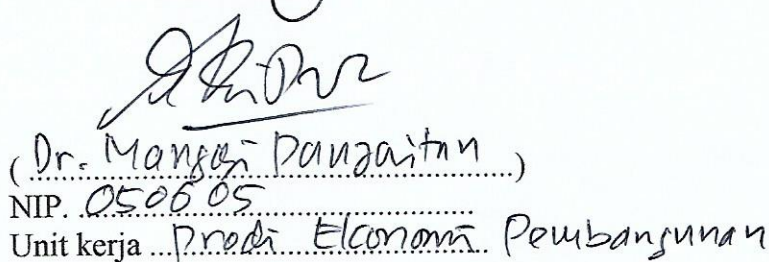 ( Dr. Mangasi Panjaitan )
NIP. 050605
Unit kerja ... Prodi Ekonomi Pembangunan